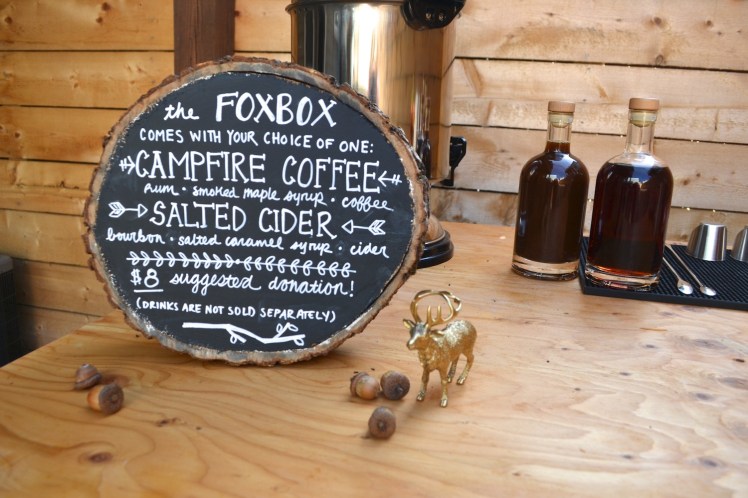 the FOXBOX
COMES WITH YOUR CHOICE OF ONE:
CAMPFIRE COFFEE
rum · smoked maple syrup · coffee
SALTED CIDER
bourbon · salted caramel syrup · cider
$8 suggested donation!
(DRINKS ARE NOT SOLD SEPARATELY)